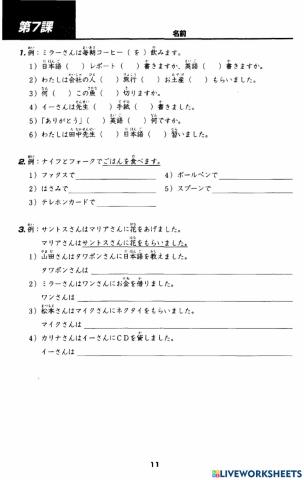 第7課
名前
1. 例：ミラーさんは毎朝コーヒー（ を ）飲みます。
1）日本語（ ）レポート（ ）書きますか、英語（ ）書きますか。
2）わたしは会社の人（ ）旅行（ ）お土産（ ）もらいました。
3）何（ ）この魚（ ）切りますか。
4）イーさんは先生（ ）手紙（ ）書きました。
5）「ありがとう」（ ）英語（ ）何ですか。
6）わたしは田中先生（ ）日本語（ ）習いました。
2. 例：ナイフとフォークでごはんを食べます。
1）ファクスで
4）ボールペンで
2）はさみで
5）スプーンで
3）テレホンカードで
3. 例：サントスさんはマリアさんに花をあげました。
マリアさんはサントスさんに花をもらいました。
1）山田さんはタワポンさんに日本語を教えました。
タワポンさんは
2）ミラーさんはワンさんにお金を借りました。
ワンさんは
3）松本さんはマイクさんにネクタイをもらいました。
マイクさんは
4）カリナさんはイーさんにCDを貸しました。
イーさんは
11
LIVEWORKSHEETS